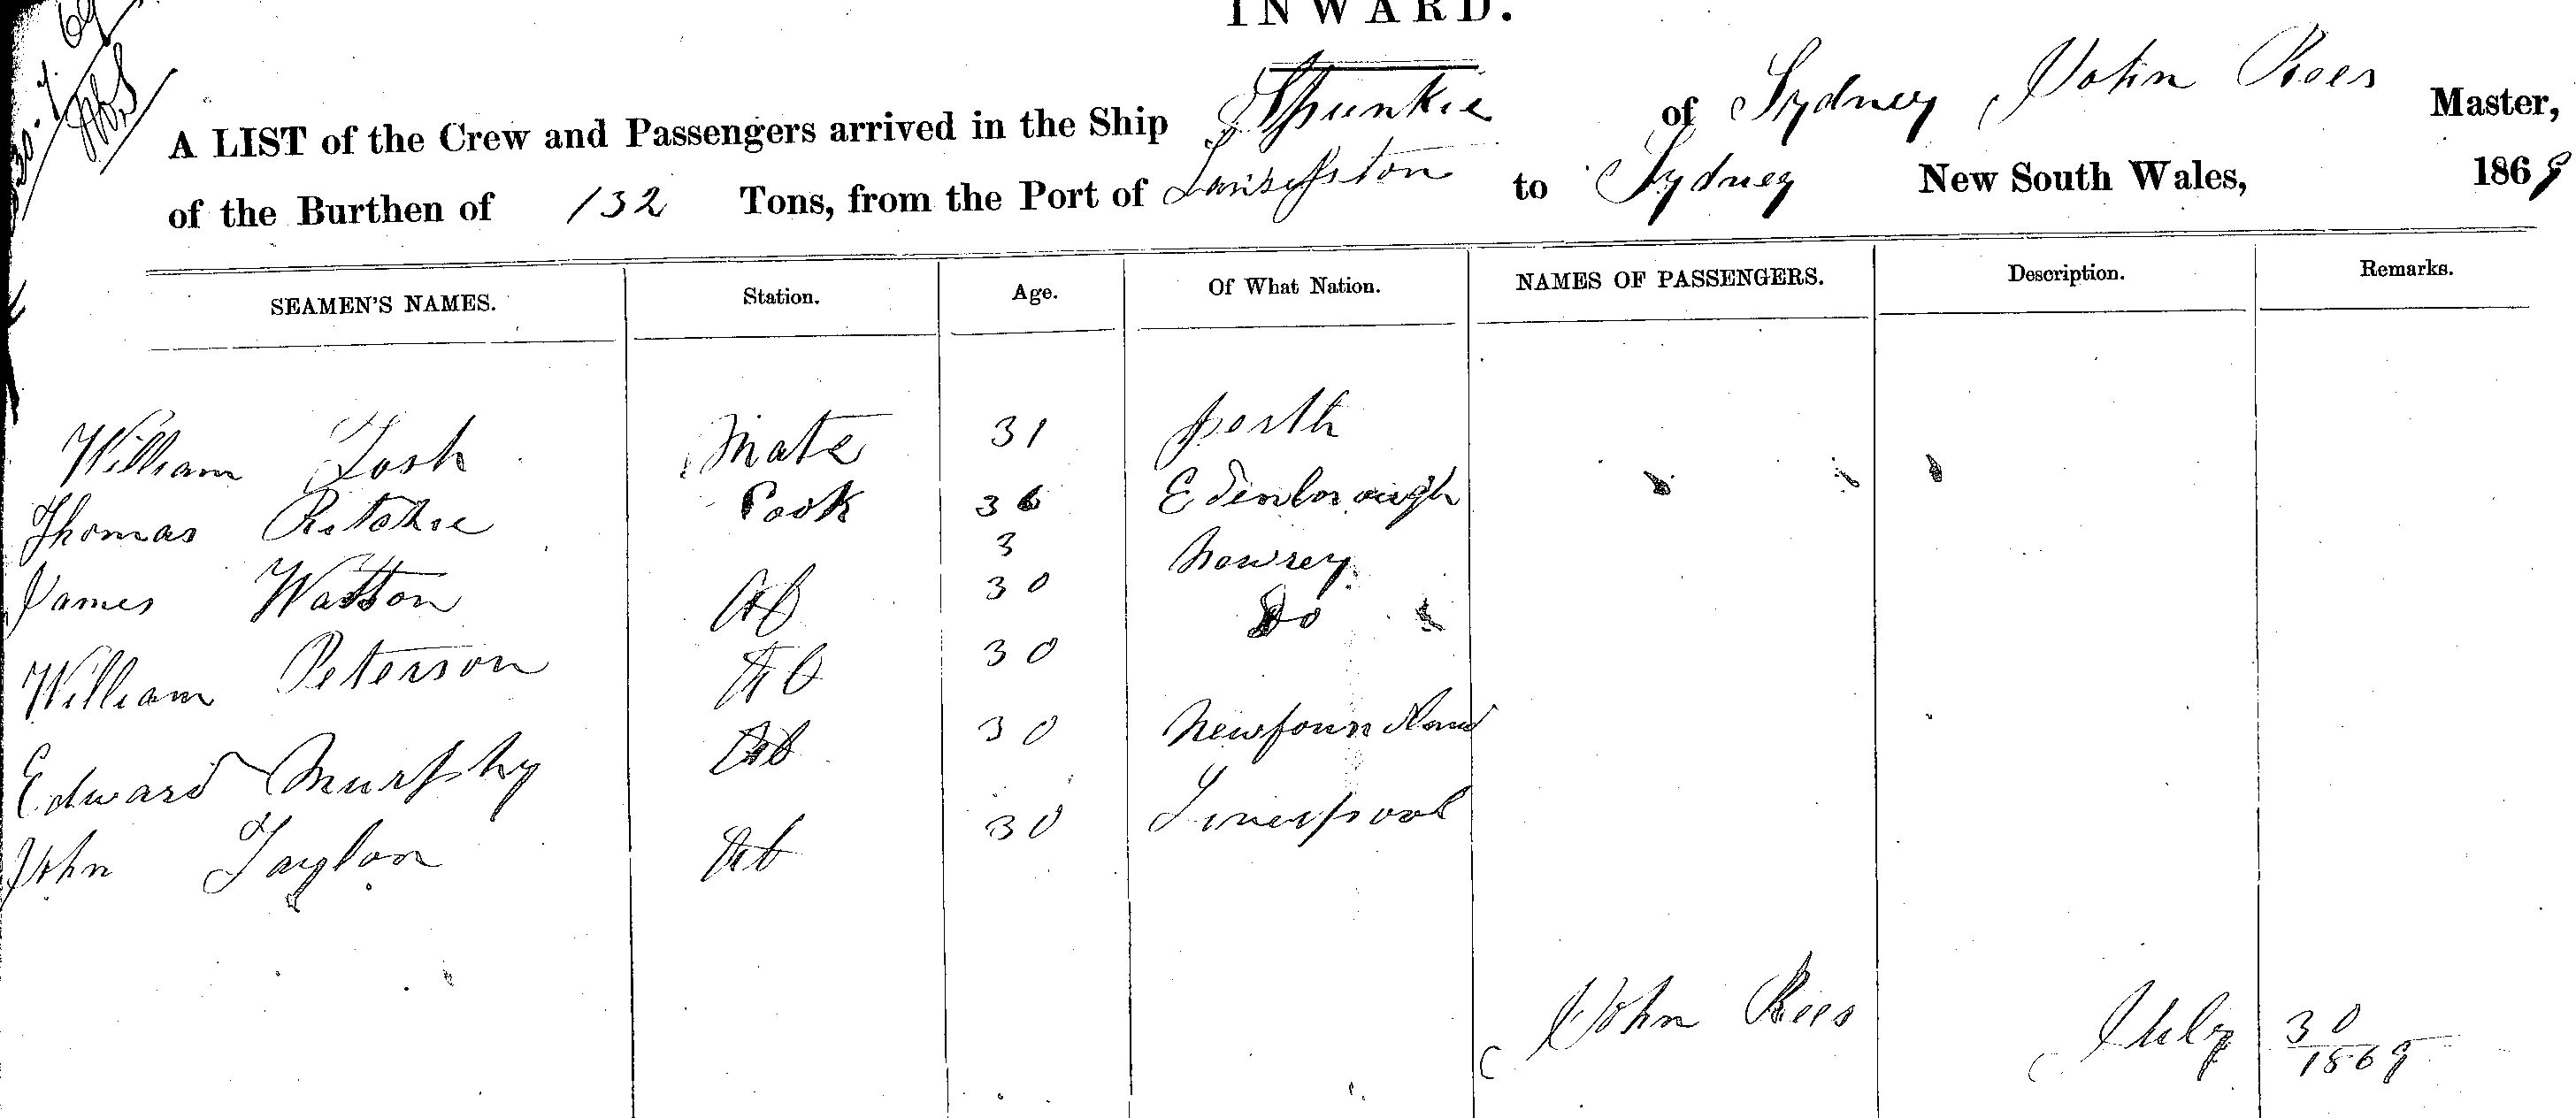 INWARD.
30-7-69
A LIST of the Crew and Passengers arrived in the Ship Spunkie of Sydney John Rees Master,
of the Burthen of 132 Tons, from the Port of to Sydney New South Wales, 1869
SEAMEN'S NAMES. Station. Age. Of What Nation. NAMES OF PASSENGERS. Description. Remarks.
William Tosh Mate 31 perth
Thomas Ritchie Cook 36 Edenborough
3
James Watton AB 30 Newrey
William Peterson AB 30 Do
Edward Murphy AB 30 Newfoundland
John Taylor AB 30 Liverpool
John Rees July 30
1869